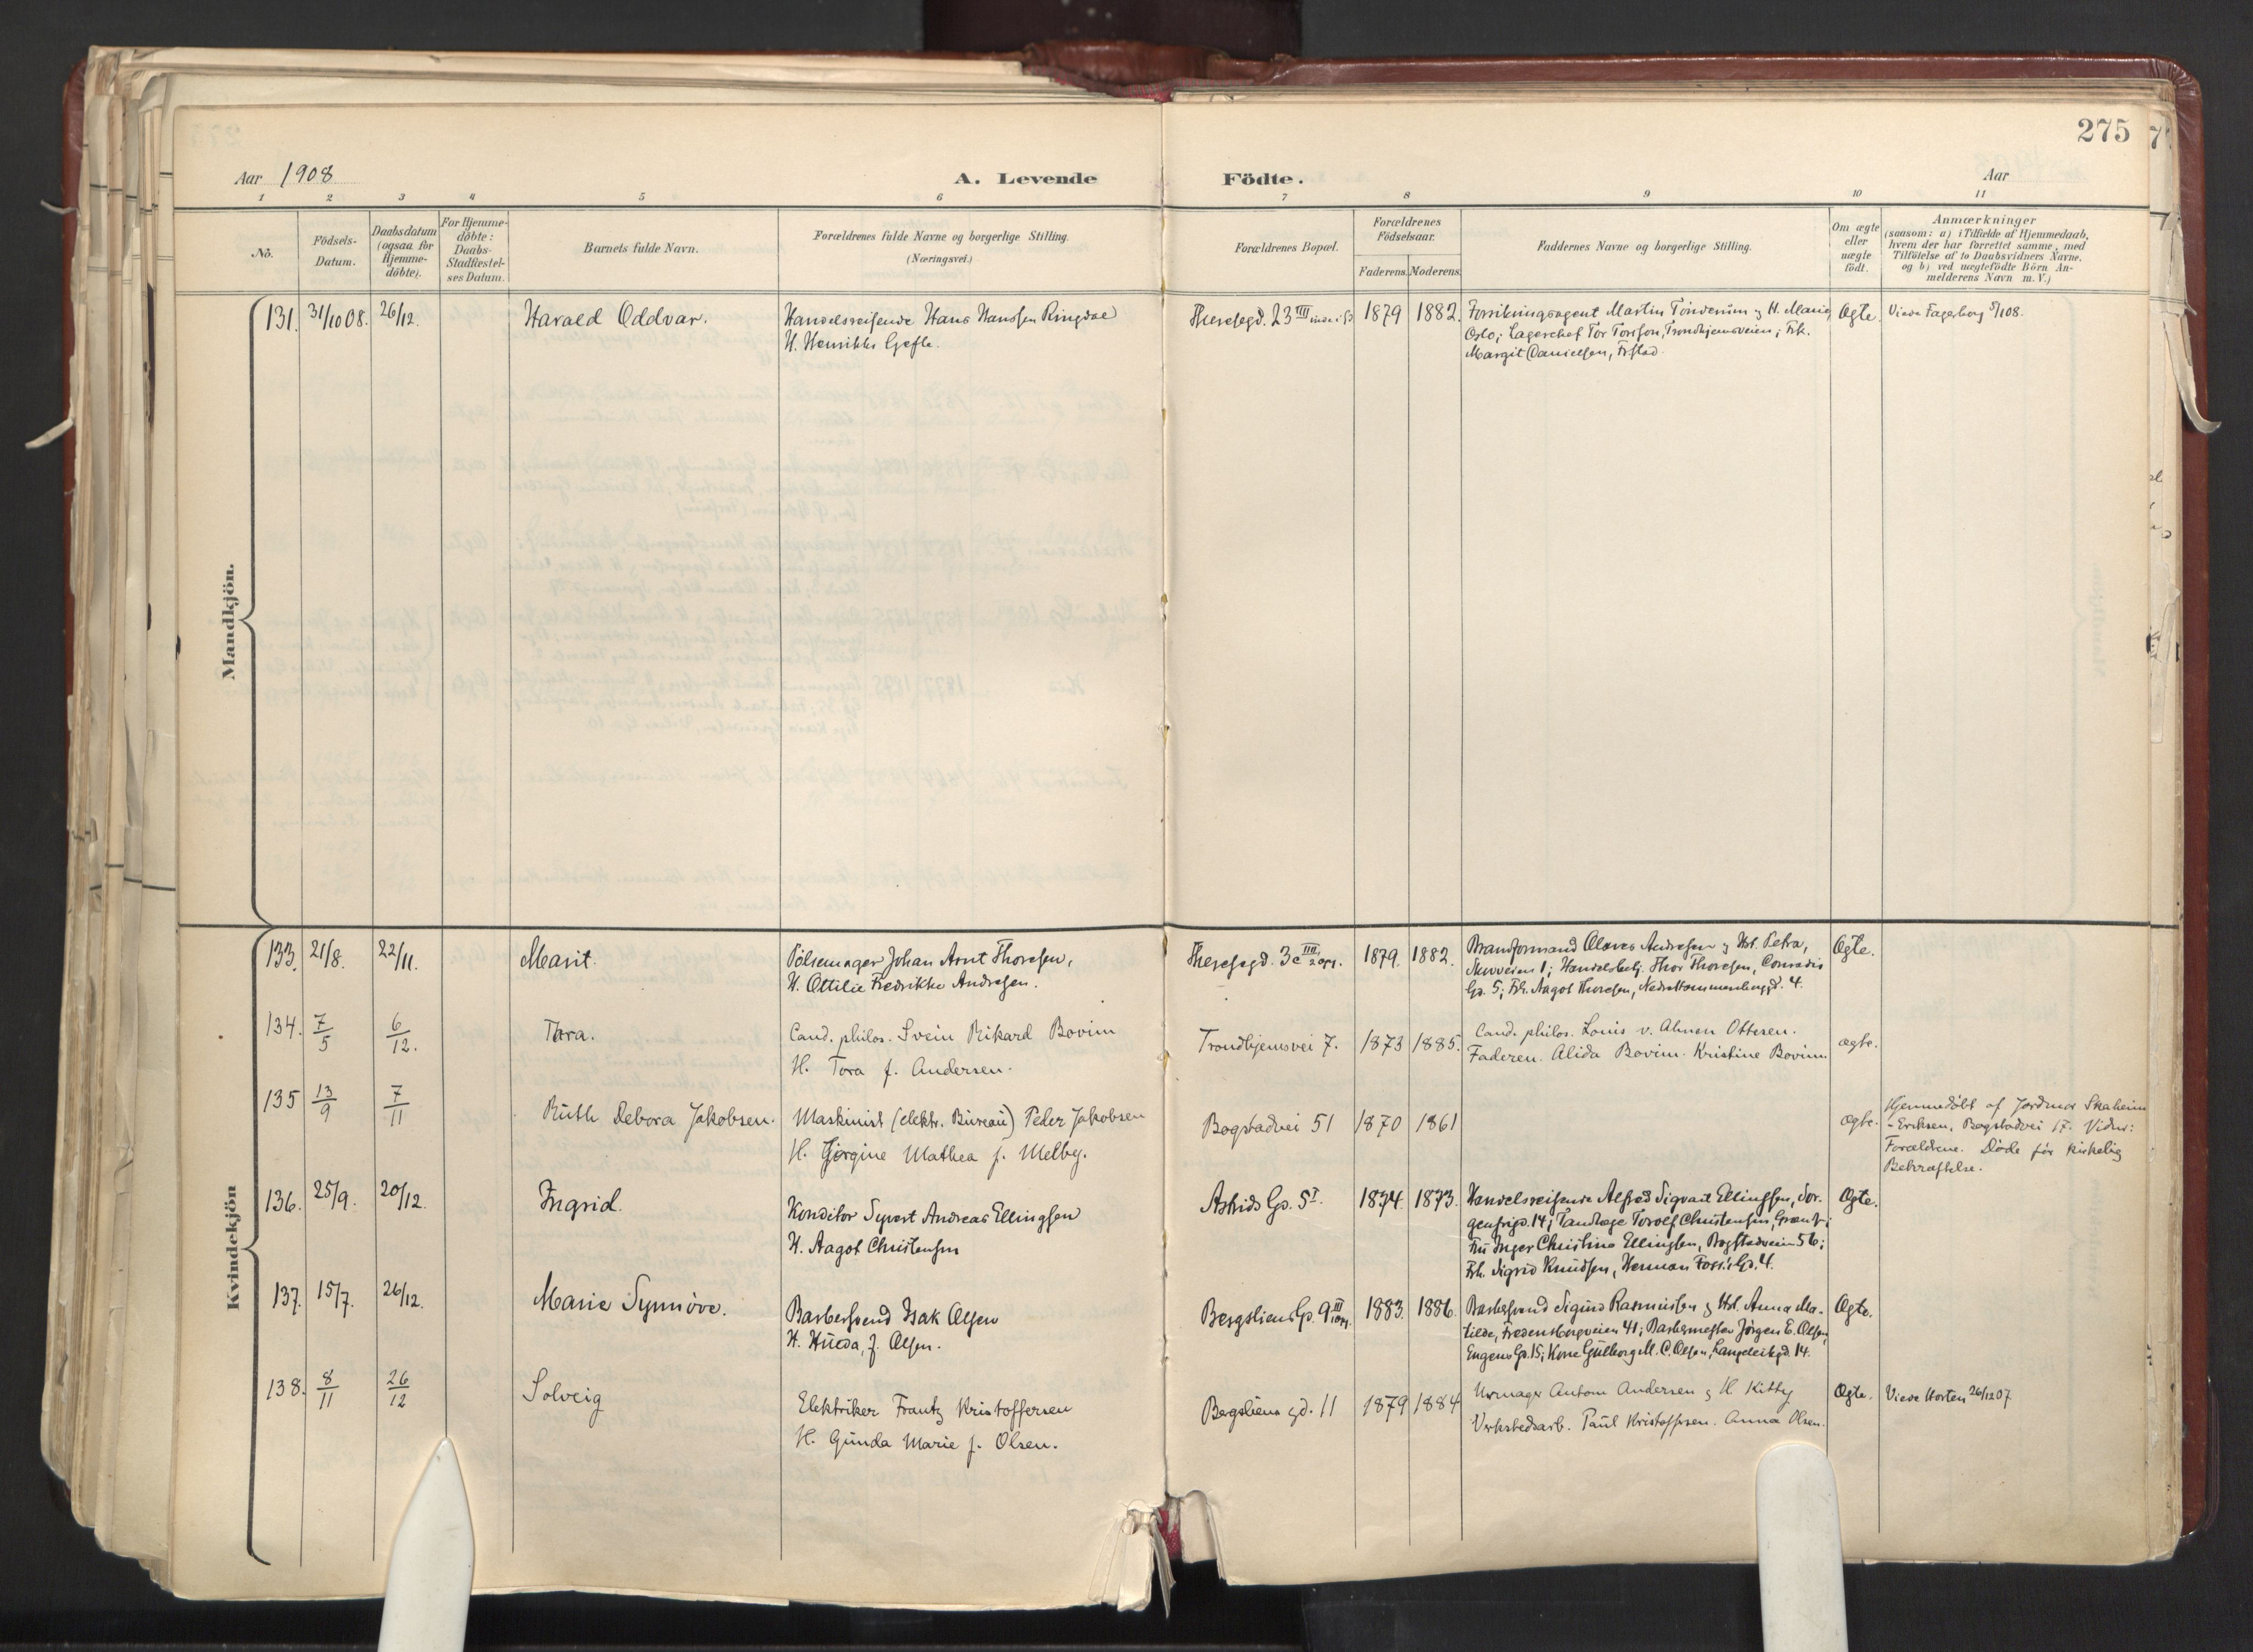 275
Aar 1908
A. Levende Födte.
Aar
1 2 3 4 5 6 7 8 9 10 11
No.
Födsels-Datum.
Daabsdatum (ogsaa for Hjemme-döbte).
For Hjemme-döbte: Daabs-Stadfæstel-ses Datum.
Barnets fulde Navn.
Forældrenes fulde Navne og borgerlige Stilling.
(Næringsvei.)
Forældrenes Bopæl.
Forældrenes Födselsaar.
Faderens. Moderens.
Faddernes Navne og borgerlige Stilling.
Om ægte eller uægte födt.
Anmærkninger
(saasom: a) i Tilfælde af Hjemmedaab,
hvem der har forrettet samme, med
Tilföielse af to Daabsvidners Navne.
og b) ved uægtefödte Börn An-
melderens Navn m. V.)
Mandkjön.
131. 31/10 08. 26/12. Harald Oddvar.
Handelsreisende Hans Hanssen Ringdal
H. Henrikke Gefle.
Theresegd. 23 III
1879 1882.
Forsikringsagent Martin Tönderum & H. Marie,
Oslo; Lagerchef Tor Torsson, Trondhjemsveien; Frk.
Margit Danielsen, Frstad.
Ægte. Viede Fagerborg 5/1 08.
Kvindekjön
133. 21/8. 22/11. Marit.
Pölsemager Johan Arnt Thoresen,
H. Ottilie Fredrikke Andresen.
Theresegd. 3c III 2 opg. 1879. 1882.
Brandformand Olaves Andresen & Hst. Petra,
1; Handelsbetj. Thor Thoresen, Conradis
Gd. 5; Frk. Aagot Thoresen, 4.
Ægte.
134. 7/5 6/12. Tora.
Cand. philos. Svein Rikard Bovim
H. Tora f. Andersen.
Trondhjemsvei 7. 1873 1885.
Cand. philos. Louis v. Ahnen Ottesen.
Faderen. Alida Bovim. Kristine Bovim.
ægte.
135 13/9 7/11 Ruth Debora Jakobsen.
Maskinist (elektr. Bureau) Peder Jakobsen
H. Gjorgine Mathea f. Melby.
Bogstadvei 51 1870 1861
ægte.
Hjemmedöbt af Jordmor Skaheim
-Eriksen, Bogstadvei 17. Vidner:
Forældrene. Döde för kirkelig
Bekræftelse.
136. 25/9. 20/12. Ingrid.
Konditor Syvert Andreas Ellingsen
H. Aagot Christensen
Astrids Gd. 5 I. 1874. 1873.
Handelsreisende Alfred Sigvart Ellingsen, Sor-
genfrigd. 14; Tandlæge Torolf Christensen,
Fru Inger Christine Ellingsen, Bogstadveien 56;
Frk. Sigrid Knudsen, Herman Foss's Gd. 4.
Ægte.
137. 15/7. 26/12. Marie Synnöve.
Barbersvend Isak Olsen
H. Hilda, f. Olsen.
Bergsliens Gd. 9 III opg. 1883. 1886.
Barbersvend Sigurd Rasmussen & Hst. Anna Ma-
tilde, Fredensborgveien 41; Barbermester Jörgen E. Olsen,
Eugens Gd. 15; Kone Gulborg M. C. Olsen, Langeleikgd. 14.
Ægte.
138. 8/11 26/12 Solveig
Elektriker Frantz Kristoffersen
H. Gunda Marie f. Olsen.
Bergsliens gd. 11 1879 1884
Urmager Antom Andersen & H Kitty
Verkstedsarb. Paul Kristoffersen. Anna Olsen.
Ægte. Viede Horten 26/12 07.